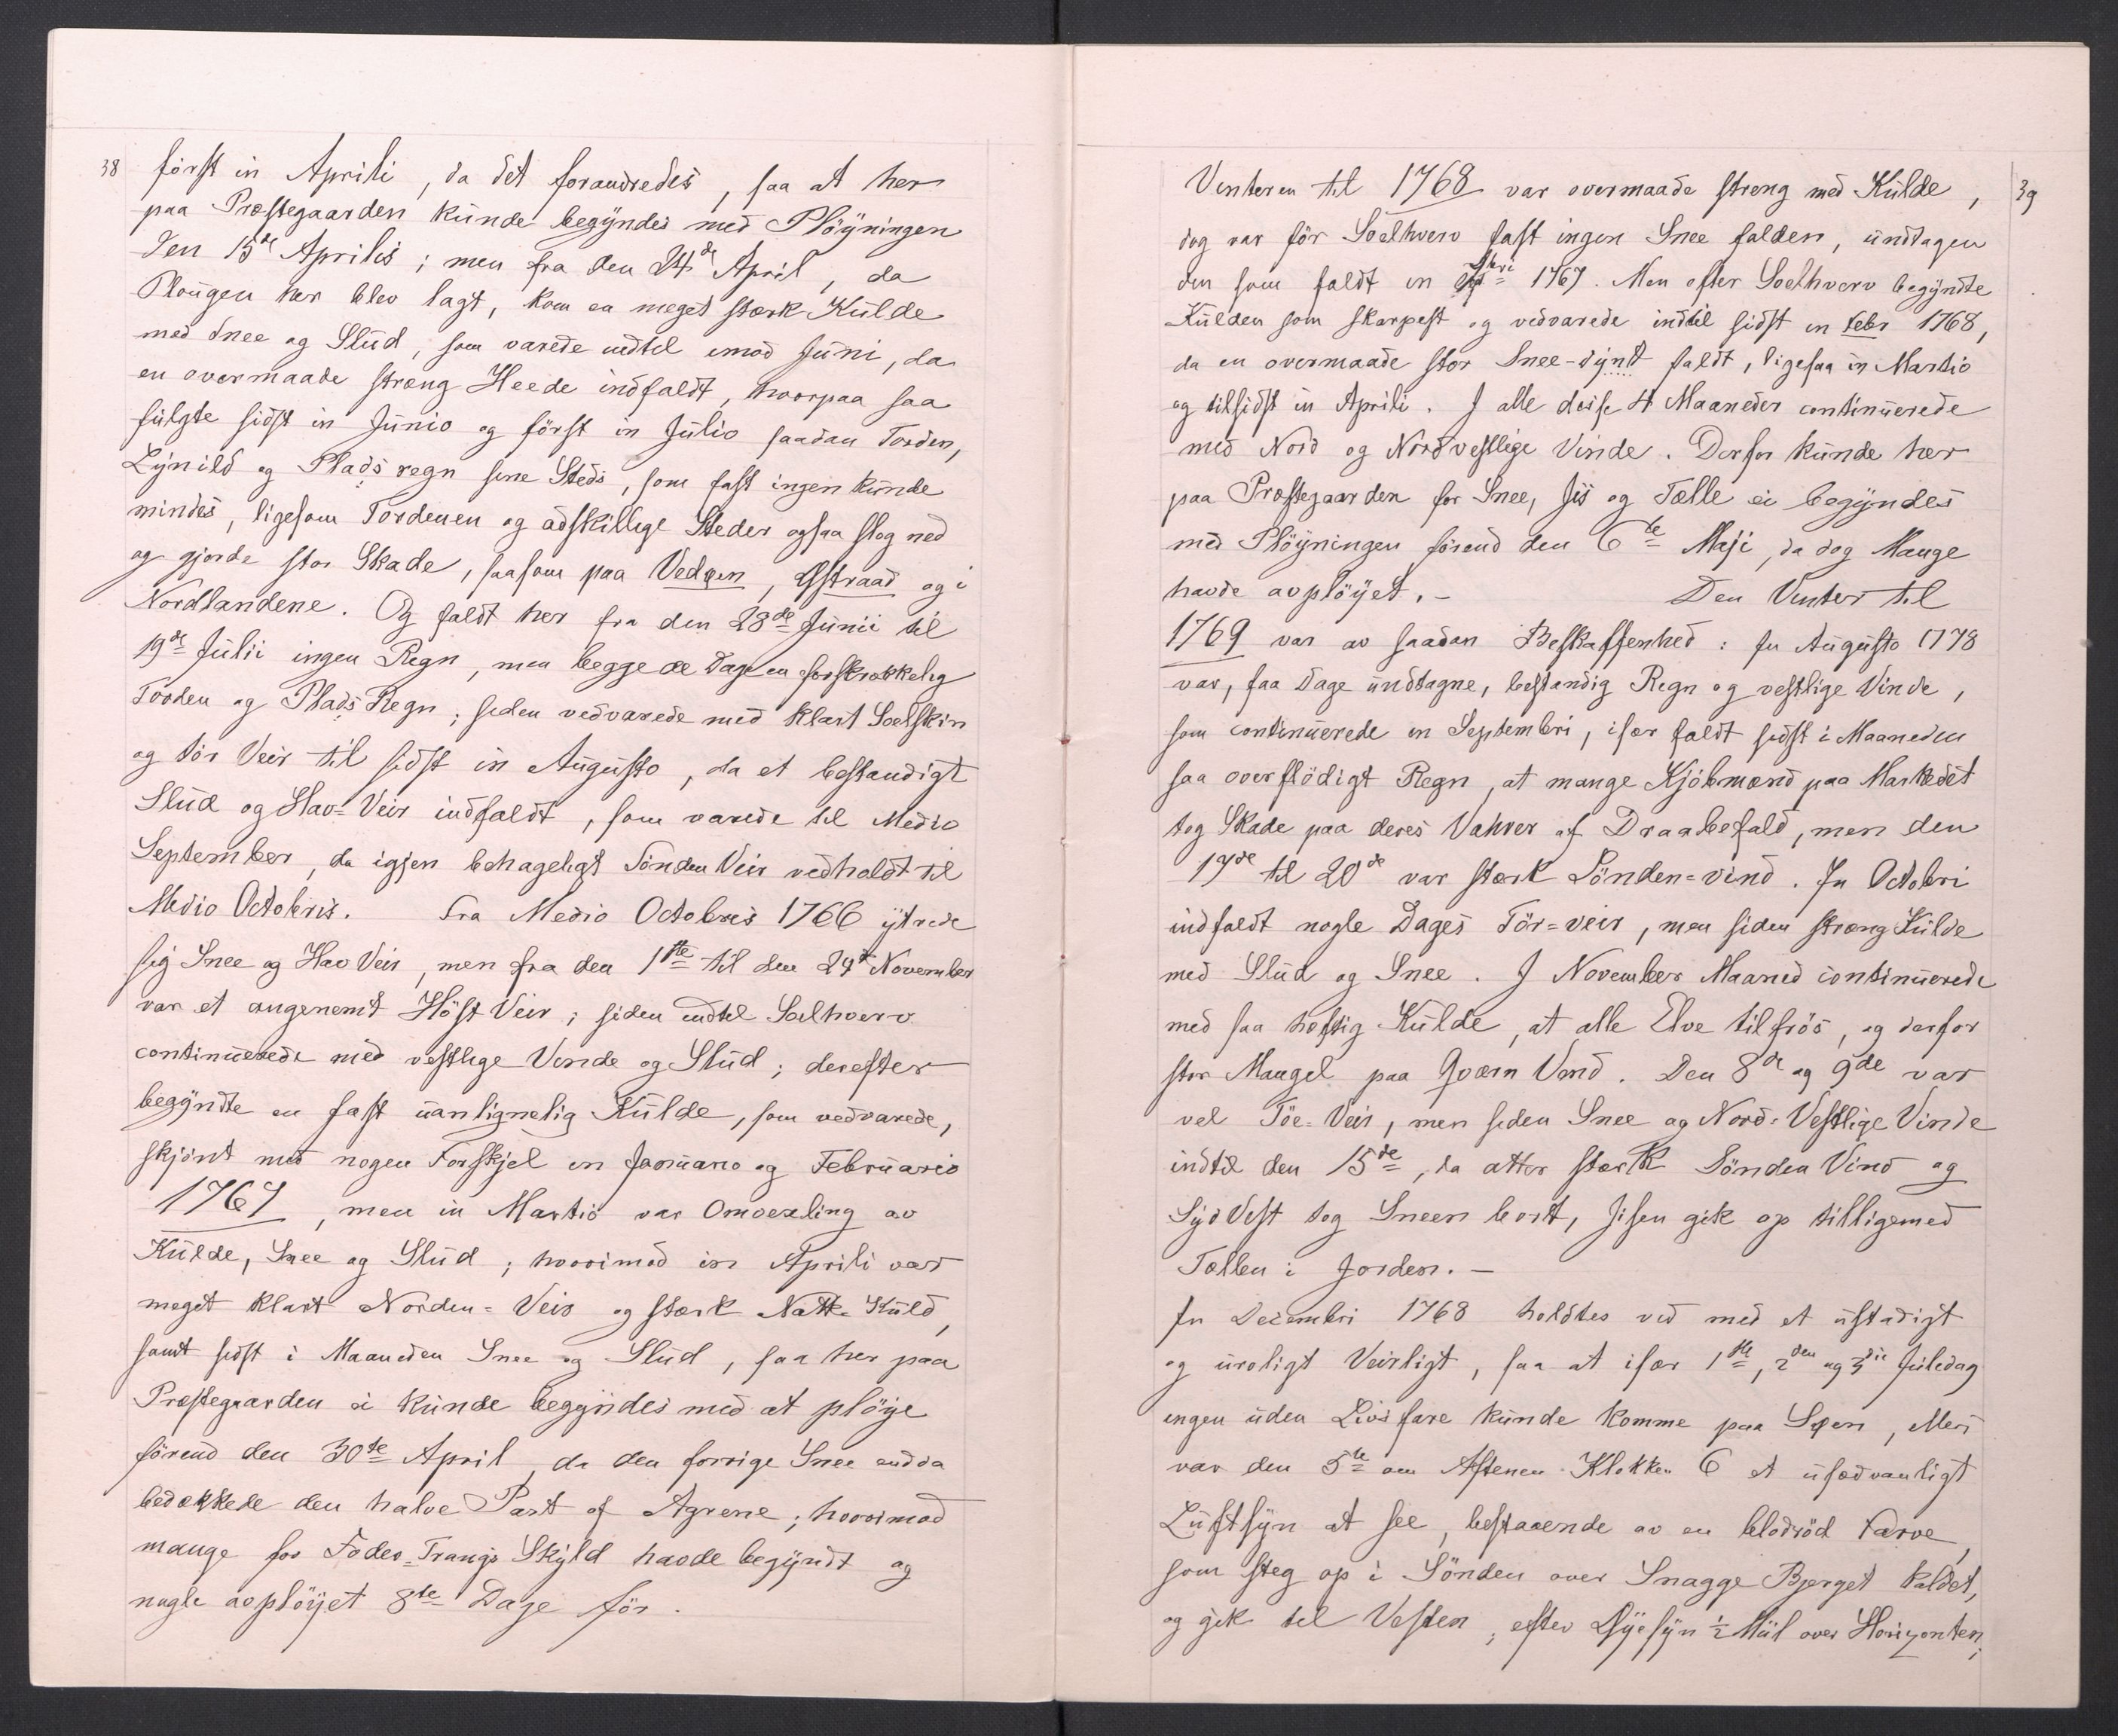 38
først in Aprili, da det forandredes, saa at her
paa Præstegaarden kunde begyndes med Pløyningen
den 15de Aprilis; men fra den 24de April, da
Plougen her blev lagt, kom en meget stærk Kulde
med Snee og Slud, som varede indtil imod Juni, da
en overmaade stræng Heede indfaldt, hvorpaa saa
fulgte sidst in Junio og först in Julio saadan Torden,
Lynild og Pladsregn sine Steds, som fast ingen kunde
mindes, ligesom Tordenen og adskillige Steder ogsaa slog ned
og gjorde stor Skade, saasom paa Vedøen, Østraad og i
Nordlandene. Og faldt her fra den 28de Junii til
19de Julii ingen Regn, men begge de Dage en forskrækkelig
Torden og Plads Regn; siden vedvarede med klart Soelskin
og tör Veir til sidst in Augusto, da et bestandigt
Slud og Hav-Veir indfaldt, som varede til Medio
September, da igjen behageligt Sönden Veir vedholdt til
Medio Octobris. Fra Medio Octobris 1766 ytrede
sig Snee og Hav Veir, men fra den 1ste til den 24de November
var et angenemt Höst Veir; siden indtil Soelhverv
continuerede med vestlige Vinde og Slud; derefter
begyndte en fast uanlignelig Kulde, som vedvarede,
skjönt med nogen Forskjel in Januario og Februario
1767, men in Martio var Omvexling av
Kulde, Snee og Slud; hvorimod in Aprili var
meget klart Norden-Veir og stærk Natte-Kuld,
samt sidst i Maaneden Snee og Slud, saa her paa
Præstegaarden ei kunde begyndes med at plöye
förend den 30te April, da den forrige Snee endda
bedækkede den halve Part af Agrene; hvorimod
mange for Foder-Trangs Skyld havde begyndt og
nogle avplöyet 8te Dage för.
39
Vinteren til 1768 var overmaade streng med Kulde,
dog var för Soelhverv fast ingen Snee falden, undtagen
den som faldt in 1767. Men efter Soelhverv begyndte
Kulden som skarpest og vedvarede indtil sidst in Febr 1768,
da en overmaade stor Snee-dynt faldt, ligesaa in Martio
og tilsidst in Aprili. I alle disse 4 Maaneder continuerede
med Nord og Nordvestlige Vinde. Derfor kunde her
paa Præstegaarden for Snee, Jis og Tælle ei begyndes
med Plöyningen förend den 6te Maji, da dog Mange
havde avplöyet. - Den Vinter til
1769 var av saadan Beskaffenhed: In Augusto 1778
var, faa Dage undtagne, bestandig Regn og vestlige Vinde,
som continuerede in Septembri, især faldt sidst i Maaneden
saa overflödigt Regn, at mange Kjöbmænd paa Markedet
tog Skade paa deres Vahrer af Draabefald, men den
17de til 20de var stærk Sönden-vind. In Octobri
indfaldt nogle Dages Tör-veir, men siden stræng Kulde
med Slud og Snee. I November Maaned continuerede
med saa heftig Kulde, at alle Elve tilfrös, og derfor
stor Mangel paa Qværn Vand. Den 8de og 9de var
vel Töe-Veir, men siden Snee og Nord-Vestlige Vinde
indtil den 15de, da atter stærk Sönden Vind og
SydVest tog Sneen bort, Jisen gik op tilligemed
Tællen i Jorden. -
In Decembri 1768 holdtes ved med et ustadigt
og uroligt Veirligt, saa at især 1ste, 2den og 3die Juledag
ingen uden Livsfare kunde komme paa Söen, Men
var den 5te om Aftenen Klokken 6 et usædvanligt
Luftsyn at see, bestaaende av en blodröd Farve,
som steg op i Sönden over Snagge Bjerget kaldet,
og gik til Vesten; efter Öyesyn ½ Miil over Horizonten;